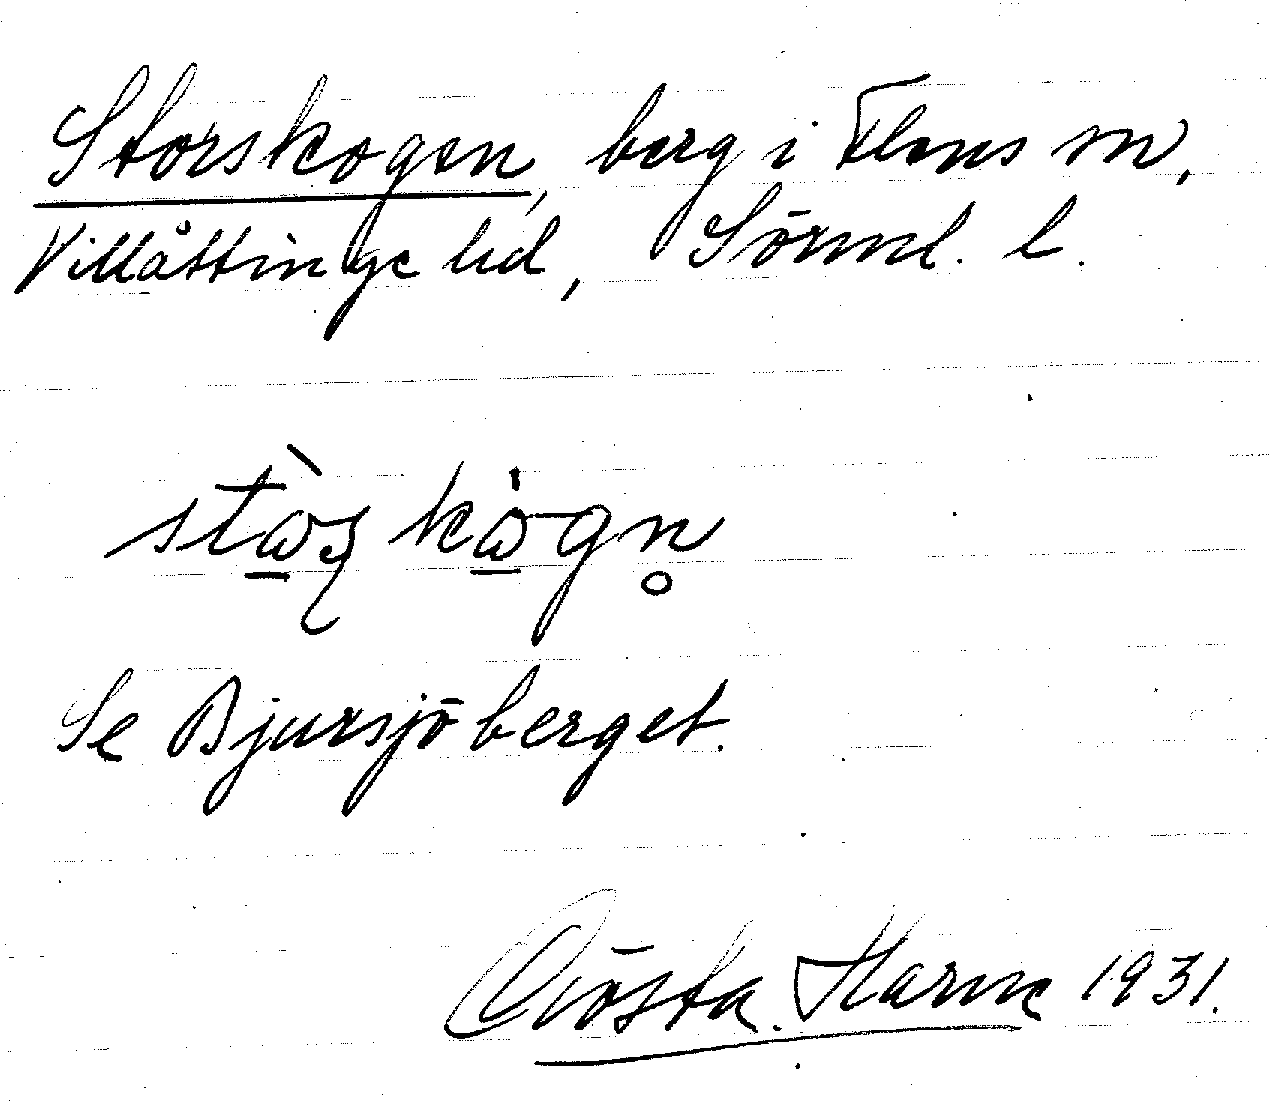 Storskogen, berg i Flens sn,
Villåttinge hd, Sörml. l.
stò̱ʂkȯ̱gn̥
Se Bjursjöberget.
Gösta Harne 1931.